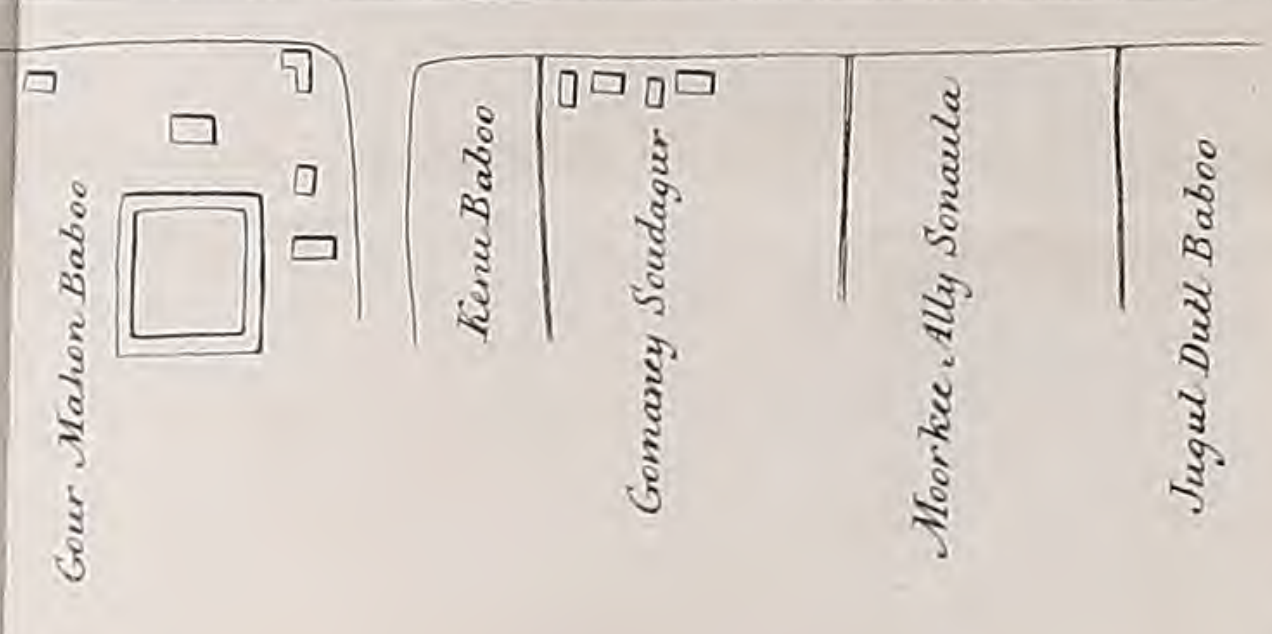 Gour Mahon Baboo
Kenu Baboo
Gomaney Soudagur
Moorkee Ally Sonaula
Jugul Dutt Baboo